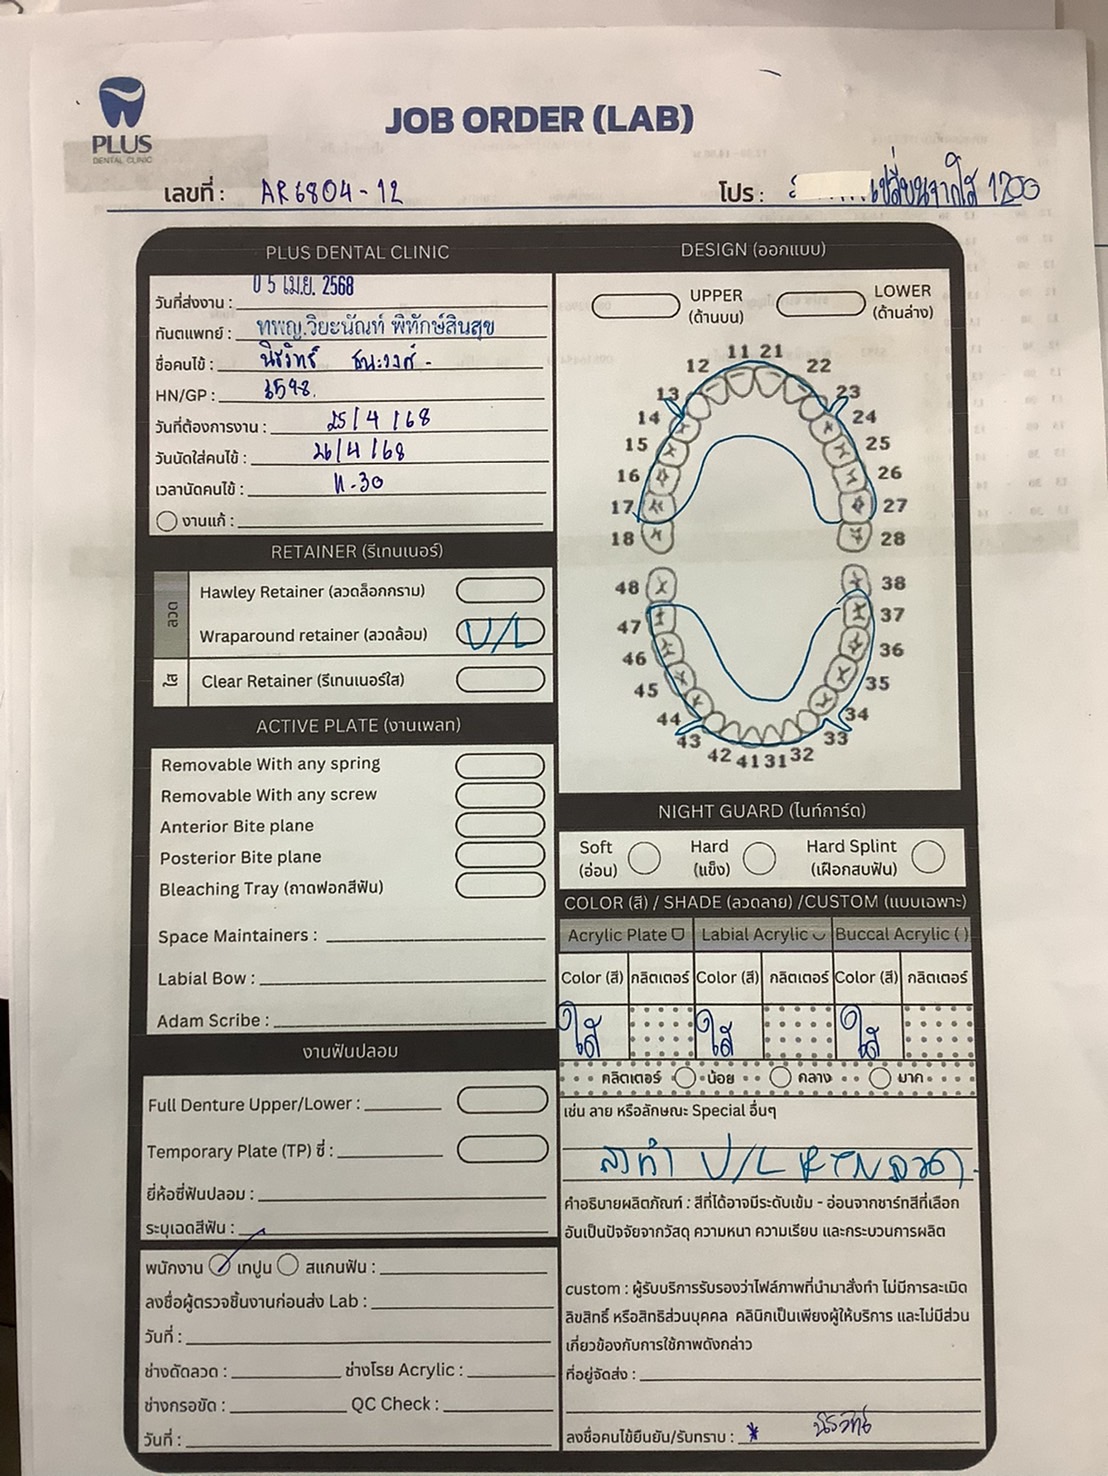 PLUS
DENTAL CLINIC
JOB ORDER (LAB)
เลขที่ : AR6804-12
โปร : เปลี่ยนจากใส 1200
PLUS DENTAL CLINIC
วันที่ส่งงาน : 05 เม.ย. 2568
ทันตแพทย์ : ทพญ.วิยะนัณท์ พิทักษ์สินสุข
ชื่อคนไข้ :
HN/GP :
วันที่ต้องการงาน : 25/4/68
วันนัดใส่คนไข้ : 26/4/68
เวลานัดคนไข้ : 11-30
งานแก้ :
RETAINER (รีเทนเนอร์)
ลวด
Hawley Retainer (ลวดล็อกกราม)
Wraparound retainer (ลวดล้อม) U/L
ใส
Clear Retainer (รีเทนเนอร์ใส)
ACTIVE PLATE (งานเพลท)
Removable With any spring
Removable With any screw
Anterior Bite plane
Posterior Bite plane
Bleaching Tray (ถาดฟอกสีฟัน)
Space Maintainers :
Labial Bow :
Adam Scribe :
งานฟันปลอม
Full Denture Upper/Lower :
Temporary Plate (TP) ซี่ :
ยี่ห้อซี่ฟันปลอม :
ระบุเฉดสีฟัน :
พนักงาน เทปูน สแกนฟัน :
ลงชื่อผู้ตรวจชิ้นงานก่อนส่ง Lab :
วันที่ :
ช่างดัดลวด : ช่างโรย Acrylic :
ช่างกรอขัด : QC Check :
วันที่ :
DESIGN (ออกแบบ)
UPPER LOWER
(ด้านบน) (ด้านล่าง)
11 21
12 22
13 23
14 24
15 25
16 26
17 27
18 28
48 38
47 37
46 36
45 35
44 34
43 33
42 41 31 32
NIGHT GUARD (ไนท์การ์ด)
Soft Hard Hard Splint
(อ่อน) (แข็ง) (เฝือกสบฟัน)
COLOR (สี) / SHADE (ลวดลาย) /CUSTOM (แบบเฉพาะ)
Acrylic Plate Labial Acrylic Buccal Acrylic ( )
Color (สี) กลิตเตอร์ Color (สี) กลิตเตอร์ Color (สี) กลิตเตอร์
ใส ใส ใส
กลิตเตอร์ น้อย กลาง มาก
เช่น ลาย หรือลักษณะ Special อื่นๆ
U/L
คำอธิบายผลิตภัณฑ์ : สีที่ได้อาจมีระดับเข้ม - อ่อนจากชาร์ทสีที่เลือก
อันเป็นปัจจัยจากวัสดุ ความหนา ความเรียบ และกระบวนการผลิต
custom : ผู้รับบริการรับรองว่าไฟล์ภาพที่นำมาสั่งทำ ไม่มีการละเมิด
ลิขสิทธิ์ หรือสิทธิส่วนบุคคล คลินิกเป็นเพียงผู้ให้บริการ และไม่มีส่วน
เกี่ยวข้องกับการใช้ภาพดังกล่าว
ที่อยู่จัดส่ง :
ลงชื่อคนไข้ยืนยัน/รับทราบ : *